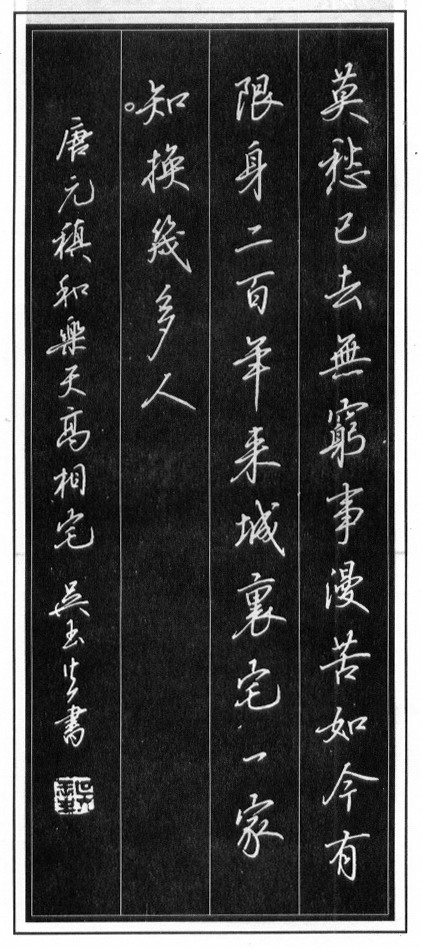 莫愁已去無窮事漫苦如今有
限身二百年来城裏宅一家
知換幾多人
唐元稹和樂天高相宅 吴玉生書